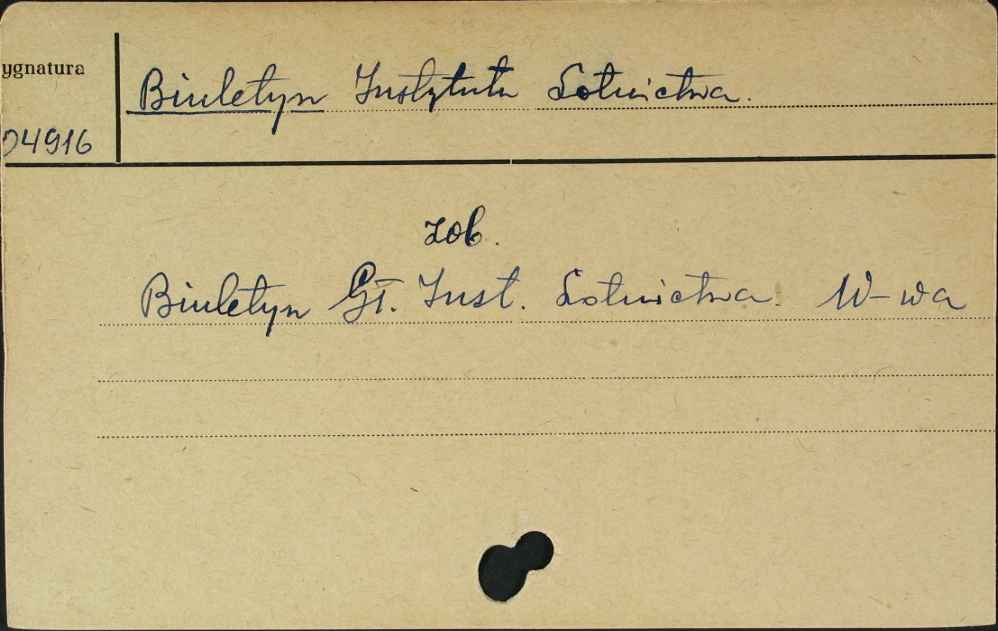 ygnatura
Biuletyn Instytutu Lotnictwa.
04916
zob.
Biuletyn Gł. Inst. Lotnictwa. W-wa